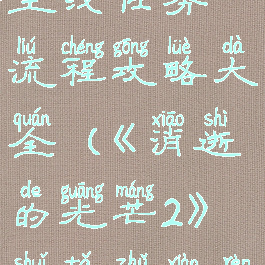 liú chéng gōng lüè dà
流程攻略大
quán xiāo shì
全（《消逝
de guāng máng
的光芒2》